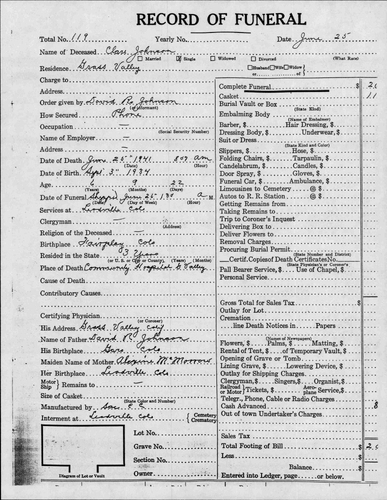 RECORD OF FUNERAL
Total No. 119 Yearly No. Date June 25
Name of Deceased Johnson
Married Single Widowed Divorced (What Race)
Residence Grass Valley Husband Wife Widow or
Charge to
Address
Order given by David R. Johnson
How Secured Phone
Occupation
(Social Security Number)
Name of Employer
Address
Date of Death June 25 1941 AM
(Hour)
Date of Birth Sept. 3 1934
Age 6 9 22
(Years) (Months) (Days)
Date of Funeral June 25
(Date) (Day of Week) (Hour)
Services at Leadville Colo
Clergyman
Religion of the Deceased
Birthplace Fairplay Colo
Resided in the State 3 Years
(or U. S. or City or County) (Years) (Months)
Place of Death Community Hospital G Valley
Cause of Death
Contributory Causes
Certifying Physician
(or Coroner)
His Address Grass Valley
Name of Father David R Johnson
His Birthplace Colo
Maiden Name of Mother
Her Birthplace Leadville Colo
Motor Ship Remains to
Size of Casket
(State Color and Number)
Manufactured by
Interment at Leadville Colo Cemetery Crematory
Lot No.
Grave No.
Section No.
Owner
Diagram of Lot or Vault
Complete Funeral
Casket
Burial Vault or Box
(State Kind)
Embalming Body
(Name of Embalmer)
Barber, $ Hair Dressing, $
Dressing Body, $ Underwear, $
Suit or Dress
(State Kind and Color)
Slippers, $ Hose, $
Folding Chairs, $ Tarpaulin, $
Candelabrum, $ Candles, $
Door Spray, $ Gloves, $
Funeral Car, $ Ambulance, $
Limousines to Cemetery @ $
Autos to R. R. Station @ $
Getting Remains from
Taking Remains to
Trip to Coroner's Inquest
Delivering Box to
Deliver Flowers to
Removal Charges
Procuring Burial Permit
(State Number and District)
Certif. Copies of Death Certificates No.
(State Physician's or Coroner's)
Pall Bearer Service, $ Use of Chapel, $
Personal Service
Gross Total for Sales Tax
Outlay for Lot
Cremation
line Death Notices in Papers
(Name of Newspapers)
Flowers, $ Palms, $ Matting, $
Rental of Tent, $ of Temporary Vault, $
Opening of Grave or Tomb
Lining Grave, $ Lowering Device, $
Outlay for Shipping Charges
Clergyman, $ Singers, $ Organist, $
Railroad or Motor Tickets, $ Aero Plane Service, $
Telegr., Phone, Cable or Radio Charges
Cash Advanced
Out of town Undertaker's Charges
Sales Tax
Total Footing of Bill
Less
Balance
Entered into Ledger, page or below